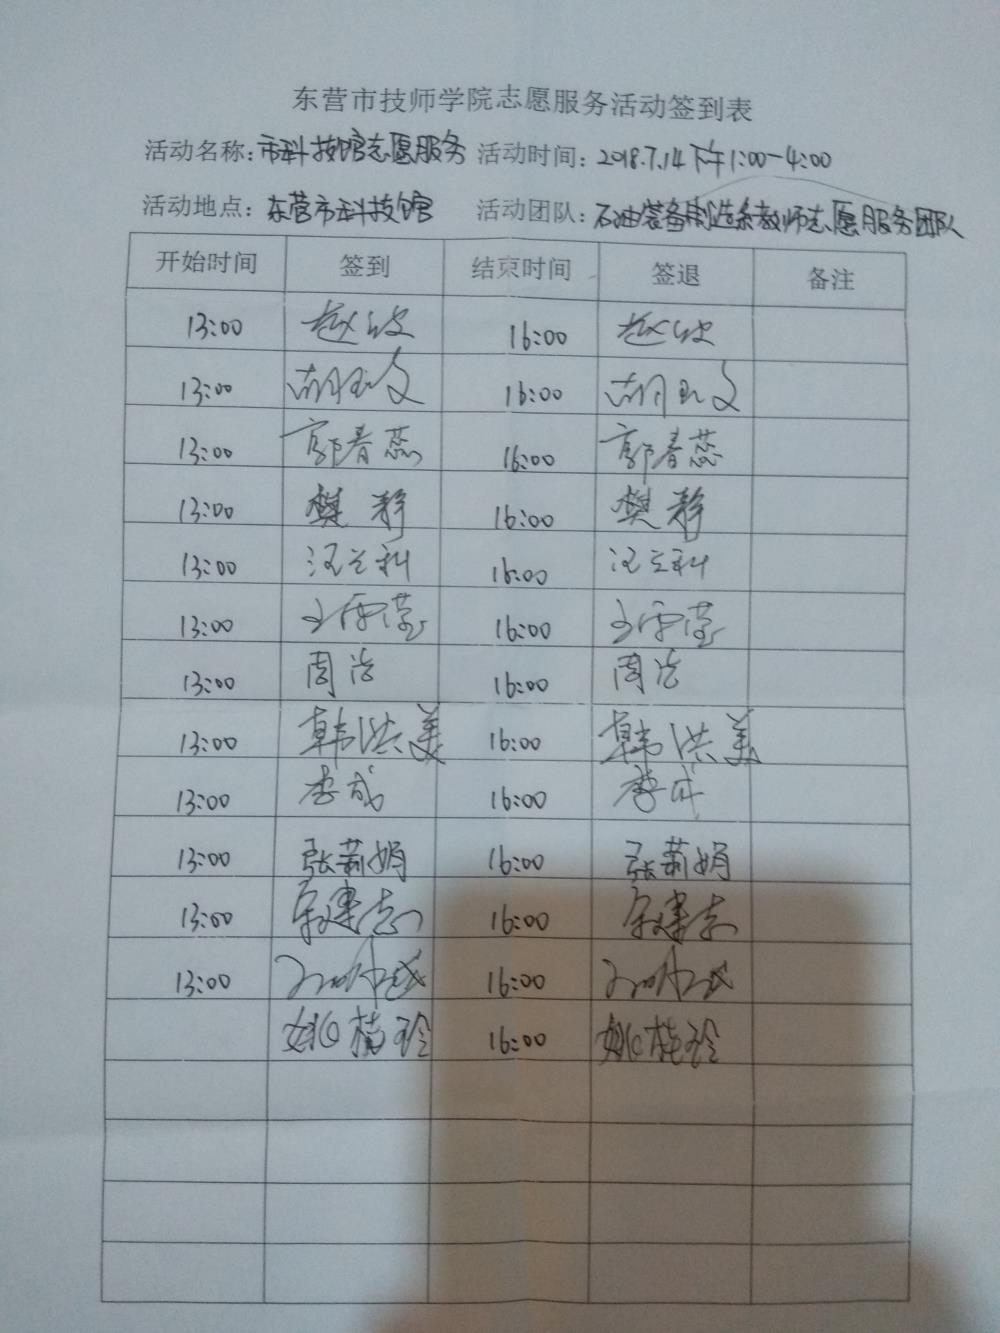 东营市技师学院志愿服务活动签到表
活动名称：市科技馆志愿服务 活动时间：2018.7.14下午1:00-4:00
活动地点：东营市科技馆 活动团队：石油装备制造系教师志愿服务团队
开始时间 签到 结束时间 签退 备注
13:00 赵波 16:00 赵波
13:00 胡玉文 16:00 胡玉文
13:00 郭春蕊 16:00 郭春蕊
13:00 樊静 16:00 樊静
13:00 汪兰科 16:00 汪兰科
13:00 王雪莹 16:00 王雪莹
13:00 周洁 16:00 周洁
13:00 韩洪美 16:00 韩洪美
13:00 李成 16:00 李成
13:00 张莉娟 16:00 张莉娟
13:00 宋建志 16:00 宋建志
13:00 16:00
姚桂玲 16:00 姚桂玲